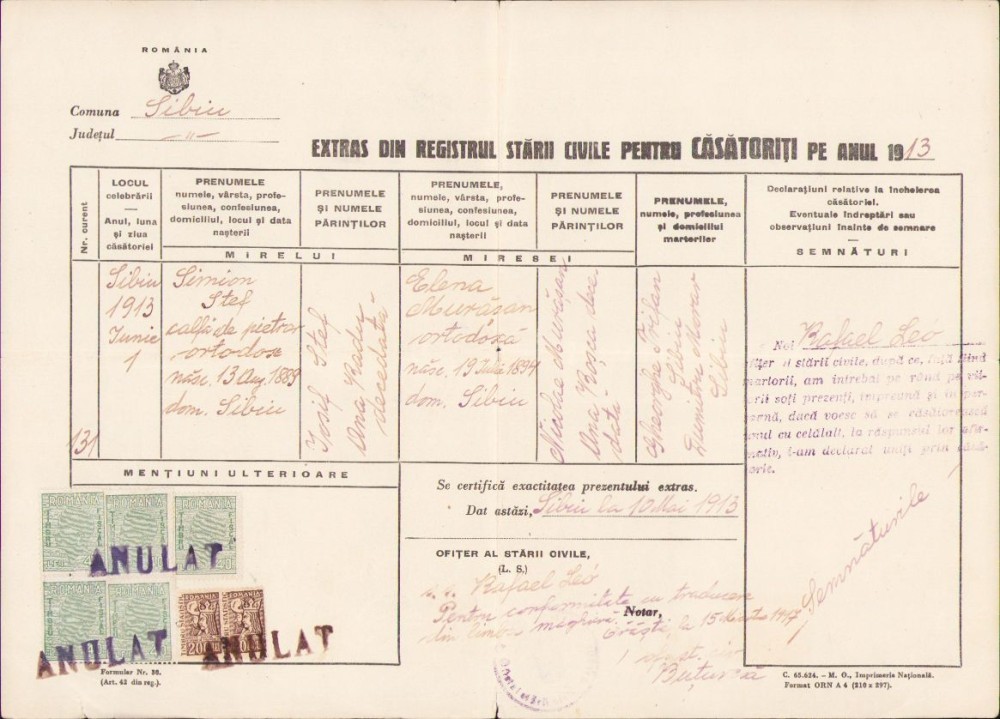 ROMÂNIA
Comuna Sibiu
Județul — „ —
EXTRAS DIN REGISTRUL STĂRII CIVILE PENTRU CĂSĂTORIȚI PE ANUL 1913
Nr. curent
LOCUL
celebrării
—
Anul, luna
și ziua
căsătoriei
PRENUMELE
numele, vârsta, profe-
siunea, confesiunea,
domiciliul, locul și data
nașterii
PRENUMELE
ȘI NUMELE
PĂRINȚILOR
MIRELUI
PRENUMELE,
numele, vârsta, profe-
siunea, confesiunea,
domiciliul, locul și data
nașterii
PRENUMELE
ȘI NUMELE
PĂRINȚILOR
MIRESEI
PRENUMELE,
numele, profesiunea
și domiciliul
martorilor
Declarațiuni relative la încheierea
căsătoriei.
Eventuale îndreptări sau
observațiuni înainte de semnare
—
SEMNĂTURI
131
Sibiu
1913
Iunie
1
Simion
Stef
calfă de pietrar
ortodox
născ. 13 Aug. 1889
dom. Sibiu
Iosif Stef
Ana Radu
decedată
Elena
Murășan
ortodoxă
născ. 19 Iulie 1894
dom. Sibiu
Nicolae Murășan
Ana Roșca dece
dată
Gheorghe Trifan
Sibiu
Dumitru Morar
Sibiu
Noi Rafael Léo
ofițer al stării civile, după ce, față fiind
martorii, am întrebat pe rând pe vii-
torii soți prezenți, împreună și în per-
soană, dacă voesc să se căsătorească
unul cu celălalt, la răspunsul lor afir-
mativ, i-am declarat uniți prin căsă-
torie.
Semnăturile
MENȚIUNI ULTERIOARE
Se certifică exactitatea prezentului extras.
Dat astăzi, Sibiu la 10 Mai 1913
OFIȚER AL STĂRII CIVILE,
(L. S.)
s. s. Rafael Léo
Pentru conformitate cu traducere
din limba maghiară
Notar,
Orăști, la 15
Buțurcă
ROMANIA
TIMBRU
FISCAL
ROMANIA
ROMANIA
TIMBRU
FISCAL
ANULAT
ANULAT
ANULAT
Formular Nr. 30.
(Art. 42 din reg.)
C. 65.624. – M. O., Imprimeria Națională.
Format ORN A 4 (210 x 297).